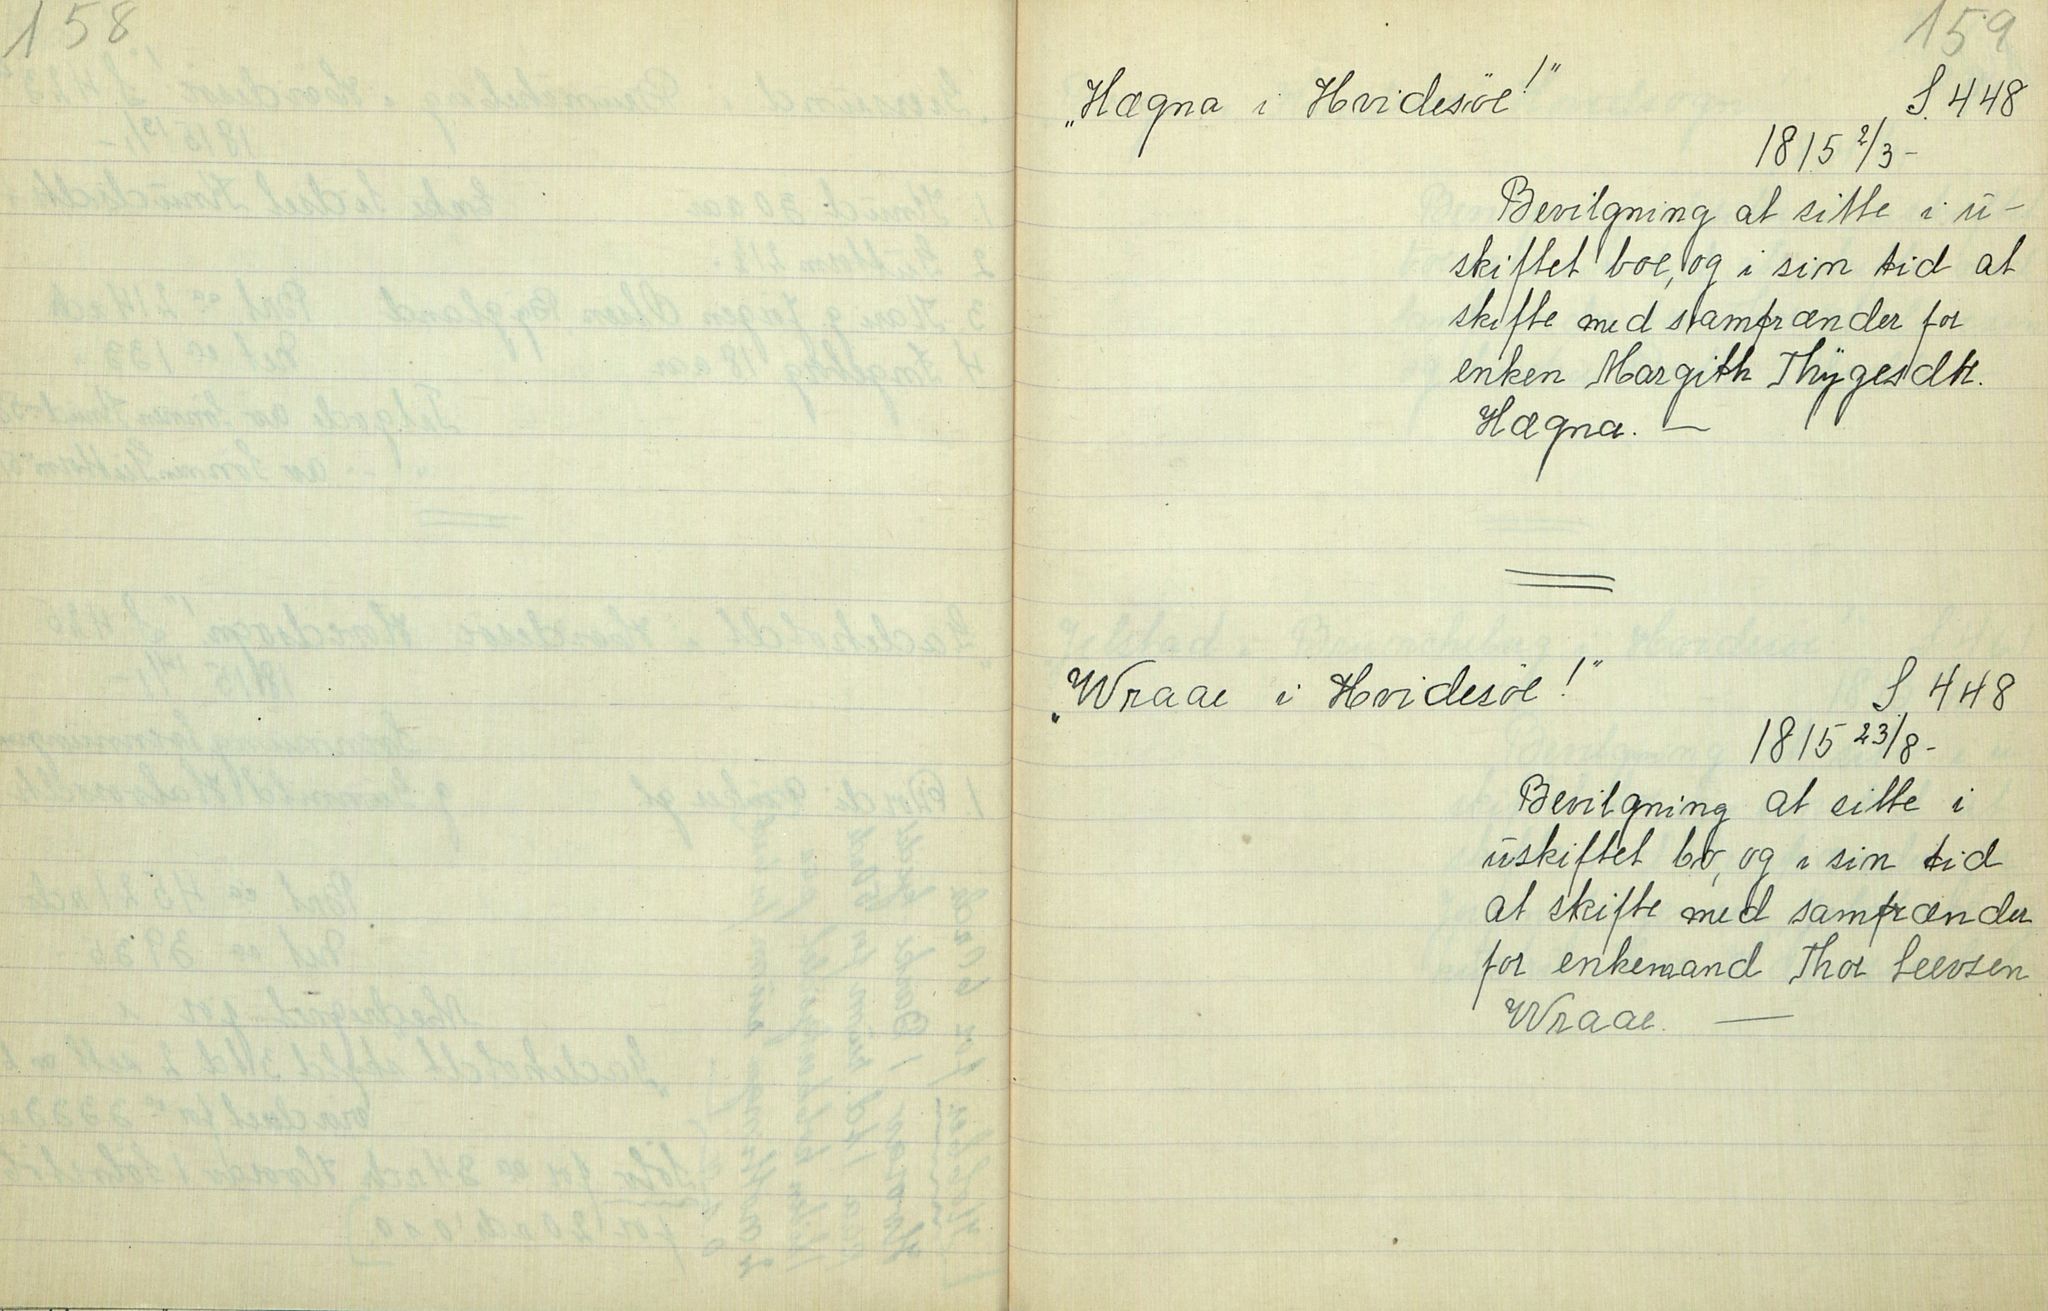 158
159
„Hægna i Hvidesöe!" S. 448
1815 2/3-
Bevilgning at sitte i ü-
skiftet boe, og i sin tid at
skifte med samfrænder for
enken Margith Thÿgesdtr.
Hægna. —
„Wraae i Hvidesöe!" S. 448
1815 23/8-
Bevilgning at sitte i
üskiftet bo, og i sin tid
at skifte med samfrænder
for enkemand Thor Leevsen
Wraae. —